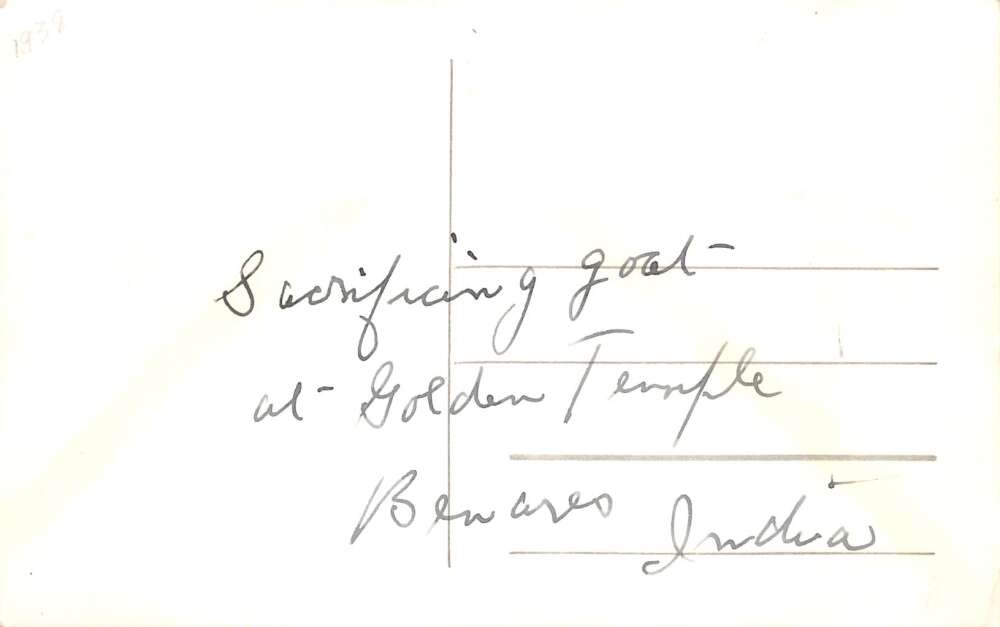 1939
Sacrificing goat
at Golden Temple
Benares India